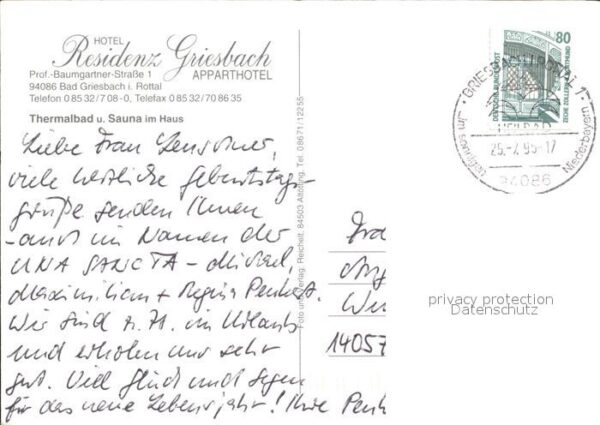 HOTEL
Residenz Griesbach
APPARTHOTEL
Prof.-Baumgartner-Straße 1
94086 Bad Griesbach i. Rottal
Telefon 0 85 32/7 08-0, Telefax 0 85 32/70 86 35
Thermalbad u. Sauna im Haus
Liebe Frau
viele herzliche Geburtstags-
grüße senden Ihnen
- auch im Namen der
UNA SANCTA - Michael,
Maximilian + Regina
Wir sind z. Zt. im Urlaub
und erholen uns sehr
gut. Viel Glück und Segen
für das neue Lebensjahr! Ihre
Foto und Verlag: Reichelt, 84503 Altötting, Tel. 08671/12255
14057
80
DEUTSCHE BUNDESPOST
ZECHE ZOLLERN II DORTMUND
GRIESBACH I ROTTAL 1
HEILBAD
25.-7.95-17
94086
Niederbayern
privacy protection
Datenschutz